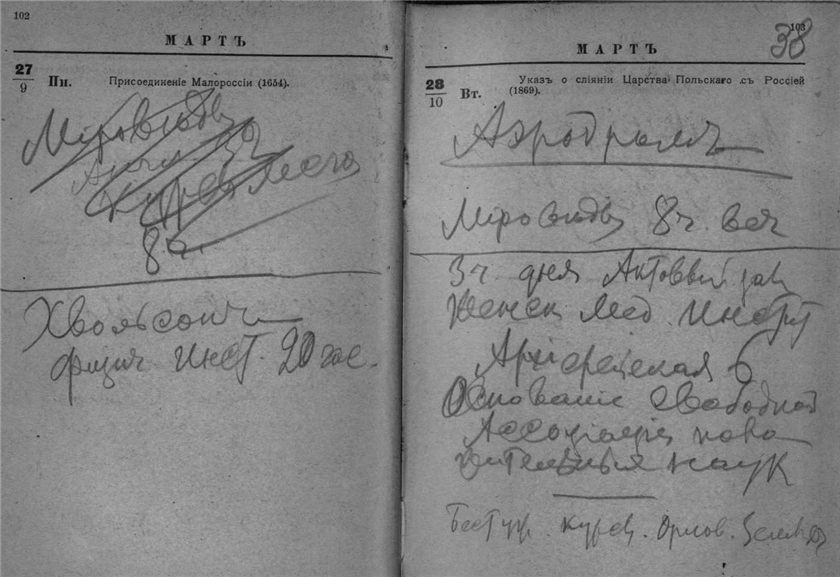 102
МАРТЪ
27/9 Пн. Присоединеніе Малороссіи (1654).
Мировѣдѣ
Курсы
8 ч.
Хвольсонъ
физич. Инст. 20 час.
103
38
МАРТЪ
28/10 Вт. Указъ о сліяніи Царства Польскаго съ Россіей
(1869).
Аэродромъ
Мировѣдѣ 8 ч. веч
3 ч. дня Актовый зал
Женск Мед. Инст
Архіерейская 6
Основаніе Свободной
Ассоціаціи поло
жительныя наук
Бестуж. Курсы. Орлов.